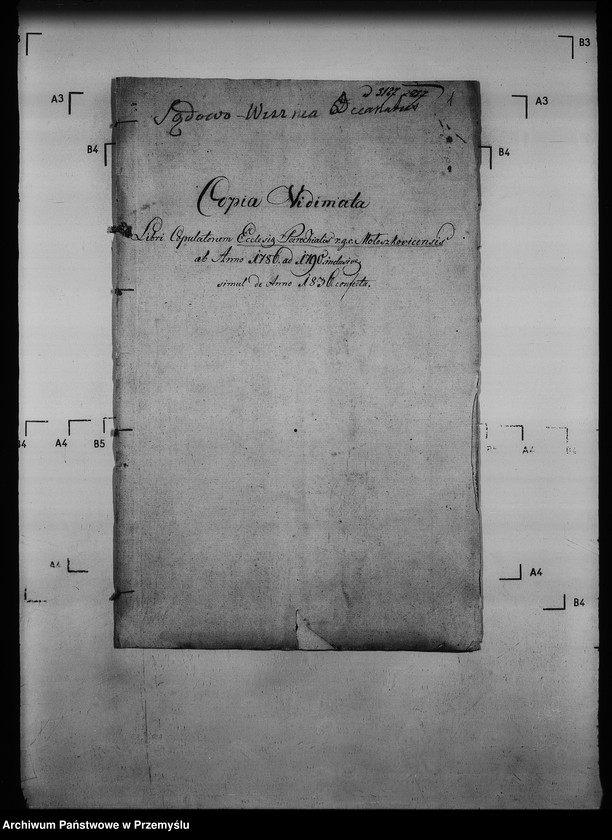 Sądowo-Wisznia Decanatus
1
Copia Vidimata
Libri Copulatorum Ecclesiæ Parochialis r.g.c. Moloszkovicensis
ab Anno 1786 ad 1790 inclusive
simul de Anno 1836 confecta.
B3
A3
B4
A3
B4
A4
B5
A4
A4
B4
A4
B4
Archiwum Państwowe w Przemyślu